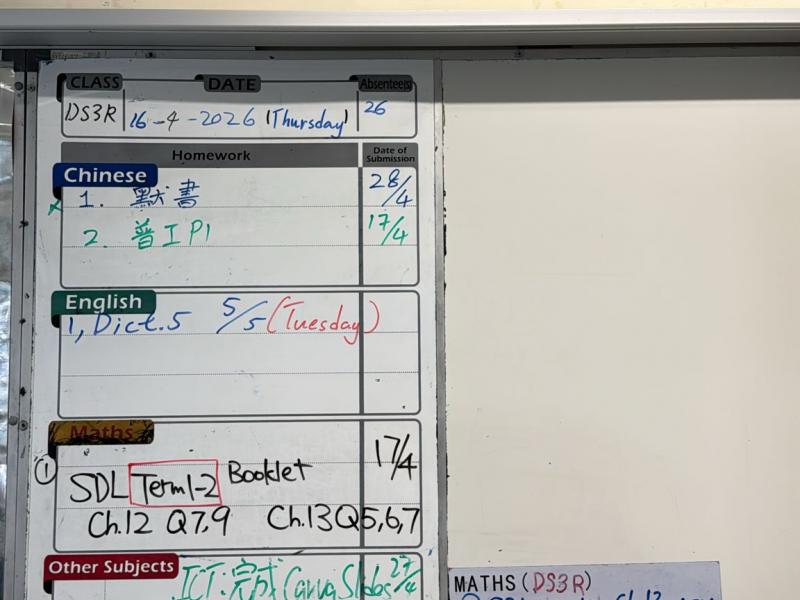 CLASS DATE Absentee(s)
DS3R 16-4-2026 (Thursday) 26
Homework Date of Submission
Chinese
1. 默書 28/4
2. 普工P1 17/4
English
1, Dict.5 5/5 (Tuesday)
Maths
① SDL Term1-2 Booklet 17/4
Ch.12 Q7,9 Ch.13Q5,6,7
Other Subjects
ICT:完成Canva Slides 27/4
MATHS (DS3R)